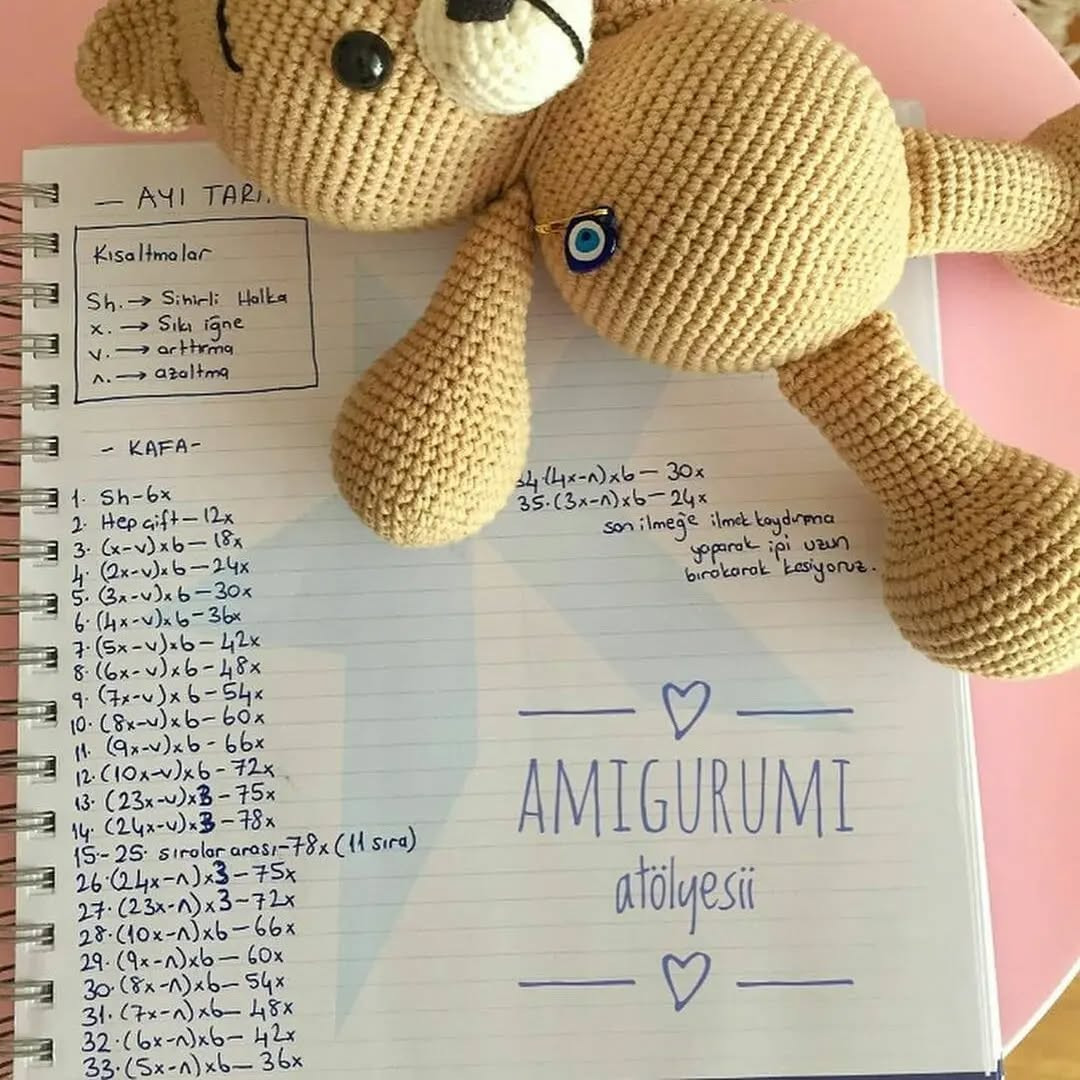 — AYI TARİ
Kısaltmalar
Sh. → Sihirli Halka
x. → Sıkı iğne
v. → arttırma
ʌ. → azaltma
- KAFA-
1. Sh-6x
2. Hep çift-12x
3. (x-v)x6-18x
4. (2x-v)x6-24x
5. (3x-v)x6-30x
6. (4x-v)x6-36x
7. (5x-v)x6-42x
8. (6x-v)x6-48x
9. (7x-v)x6-54x
10. (8x-v)x6-60x
11. (9x-v)x6-66x
12. (10x-v)x6-72x
13. (23x-v)x3-75x
14. (24x-v)x3-78x
15-25. sıralar arası-78x (11 sıra)
26. (24x-ʌ)x3-75x
27. (23x-ʌ)x3-72x
28. (10x-ʌ)x6-66x
29. (9x-ʌ)x6-60x
30. (8x-ʌ)x6-54x
31. (7x-ʌ)x6-48x
32. (6x-ʌ)x6-42x
33. (5x-ʌ)x6-36x
34. (4x-ʌ)x6-30x
35. (3x-ʌ)x6-24x
son ilmeğe ilmek kaydırma
yaparak ipi uzun
bırakarak kesiyoruz.
AMIGURUMI
atölyesii